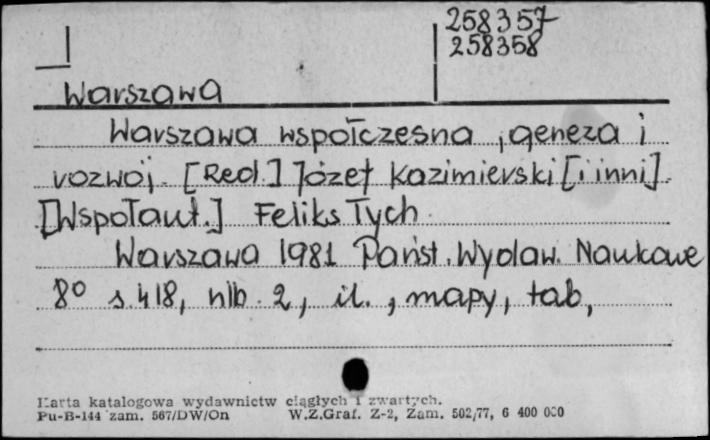 258357
258358
Warszawa
Warszawa wspołczesna, geneza i
rozwoj. [Red.] Józef Kazimierski [i inni].
[Wspołaut.] Feliks Tych.
Warszawa 1981 Państ. Wydaw. Naukowe
8° s. 418, nlb. 2, il., mapy, tab,
Karta katalogowa wydawnictw ciągłych i zwartych.
Pu-B-144 zam. 567/DW/On W.Z.Graf. Z-2, Zam. 502/77, 6 400 000